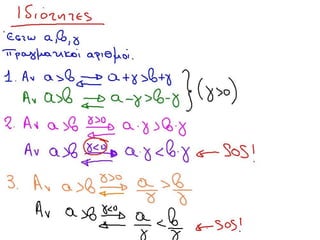 Ιδιότητες
Έστω α,β,γ
πραγματικοί αριθμοί.
1. Αν α>β ⇄ α+γ>β+γ
Αν α>β ⇄ α-γ>β-γ } (γ>0)
2. Αν α>β γ>0 ⇄ α·γ>β·γ
Αν α>β γ<0 ⇄ α·γ<β·γ ← SOS!
3. Αν α>β γ>0 ⇄ α/γ > β/γ
Αν α>β γ<0 ⇄ α/γ < β/γ ← SOS!